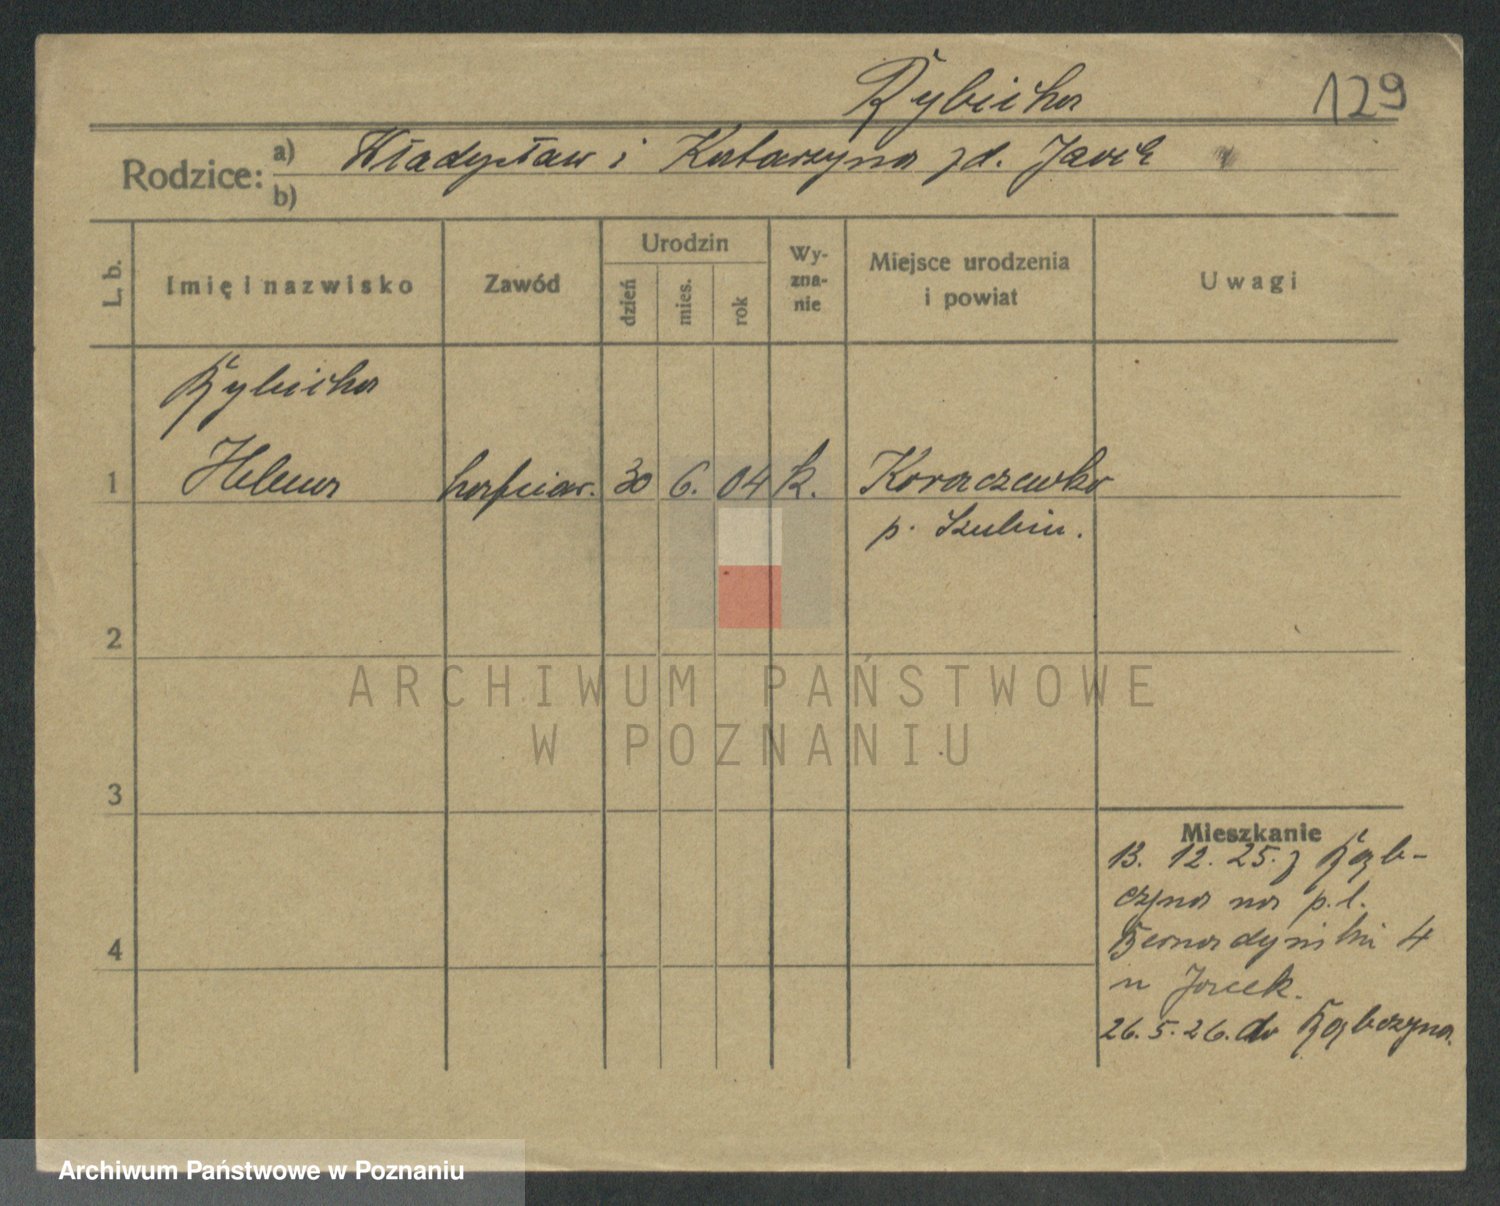 Rybicka
129
Rodzice: a) Władysław i Katarzyna zd.
b)
L. b.
Imię i nazwisko
Zawód
Urodzin
dzień
mies.
rok
Wy-
zna-
nie
Miejsce urodzenia
i powiat
Uwagi
Rybicka
1 Helena hafciar. 30 6. 04 k. Koraczewko
p. Szubin.
2
3
4
Mieszkanie
13. 12. 25. z Rąb-
czyna na p.l.
Bernardyński 4
u Jacek.
26. 5. 26. do Rąbczyna.
ARCHIWUM PAŃSTWOWE
W POZNANIU
Archiwum Państwowe w Poznaniu